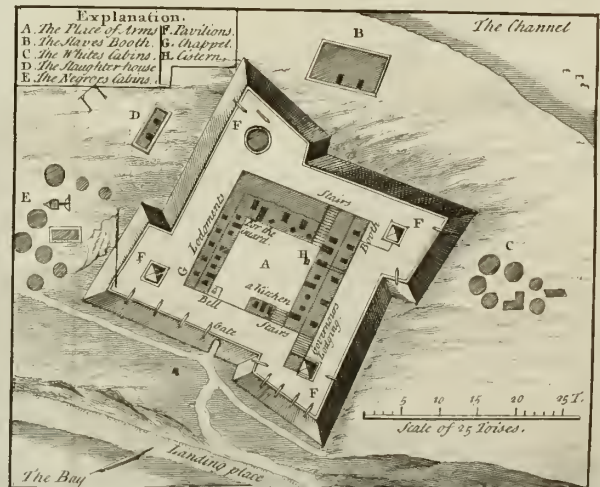 Explanation.
A. The Place of Arms
B. The Slaves Booth.
C. The Whites Cabins.
D. The Slaughter house
E. The Negroes Cabins.
F. Pavilions.
G. Chappel.
H. Cistern.
The Channel
B
D
E
F
F
F
F
C
A
G
H
Stairs
Lodgments
for the
guard
Booth
a Kitchen
Bell
Stairs
Gate
Governours
Lodging
5 10 15 20 25 T.
Scale of 25 Toises.
Landing place
The Bay